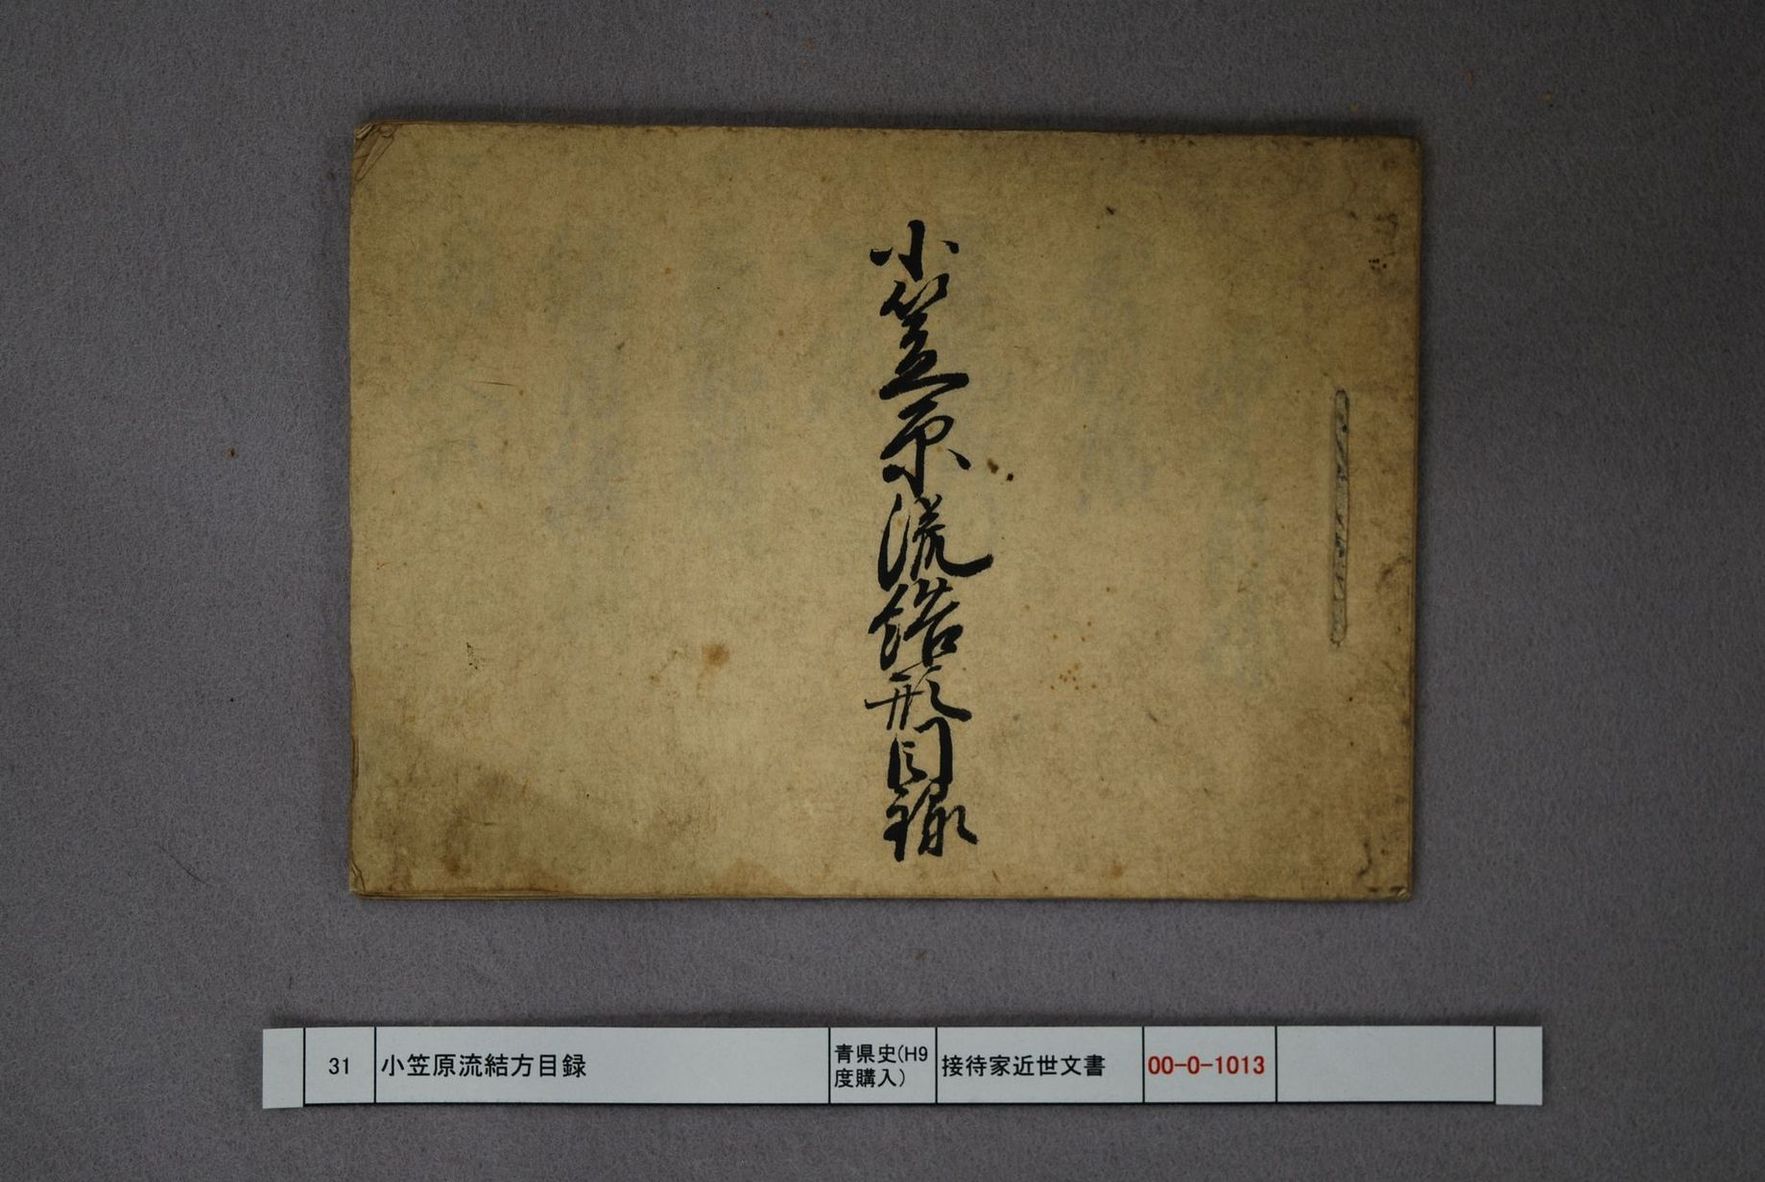 小笠原流結形目録
31
小笠原流結方目録
青県史(H9
度購入)
接待家近世文書
00-0-1013